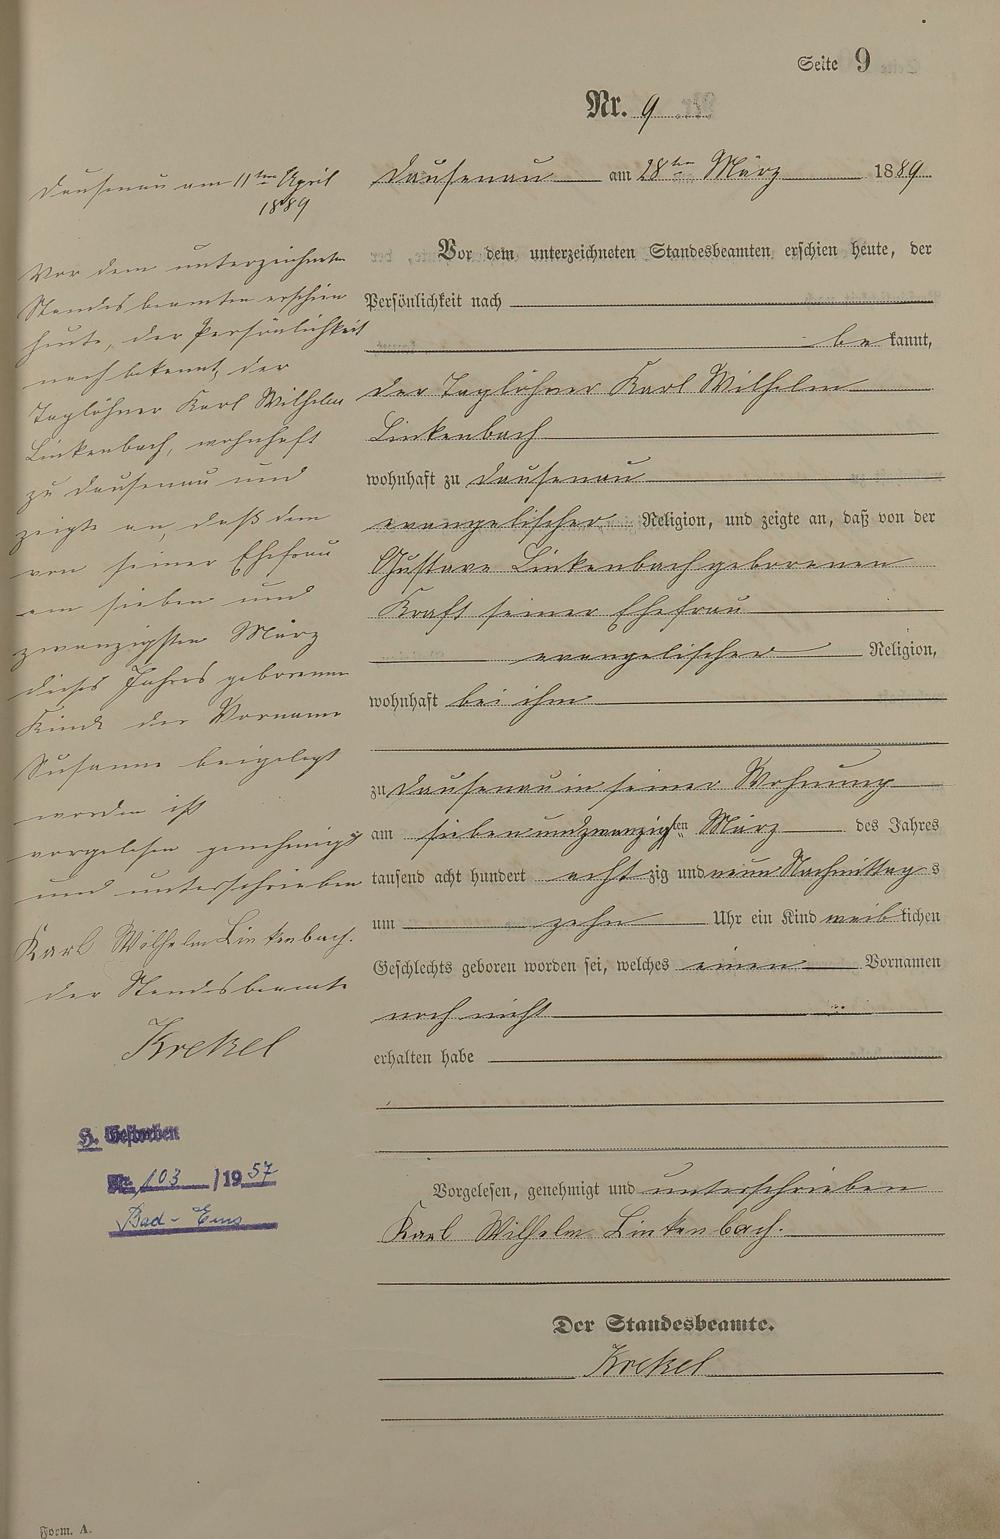 Seite 9
Nr. 9
Dausenau am 28ten März 1889
Vor dem unterzeichneten Standesbeamten erschien heute, der
Persönlichkeit nach
be kannt,
der Taglöhner Karl Wilhelm
Linkenbach
wohnhaft zu Dausenau
evangelischer Religion, und zeigte an, daß von der
Gustave Linkenbach geborenen
Kraft seiner Ehefrau
evangelischer Religion,
wohnhaft bei ihm
zu Dausenau in seiner Wohnung
am sieben und zwanzigsten März des Jahres
tausend acht hundert acht zig und neun Nachmittag s
um zehn Uhr ein Kind weib lichen
Geschlechts geboren worden sei, welches einen Vornamen
noch nicht
erhalten habe
Vorgelesen, genehmigt und unterschrieben
Karl Wilhelm Linkenbach.
Der Standesbeamte.
Krekel
Dausenau am 11ten April
1889
Vor dem unterzeichneten
Standesbeamten erschien
heute, der Persönlichkeit
nach bekannt, der
Taglöhner Karl Wilhelm
Linkenbach, wohnhaft
zu Dausenau und
zeigte an, daß dem
von seiner Ehefrau
am sieben und
zwanzigsten März
dieses Jahres geborenen
Kinde der Vorname
Susanne beigelegt
worden ist
vorgelesen genehmigt
und unterschrieben
Karl Wilhelm Linkenbach.
der Standesbeamte
Krekel
H. Gestorben
Nr. 103 /1957
Bad-Ems
Form. A.